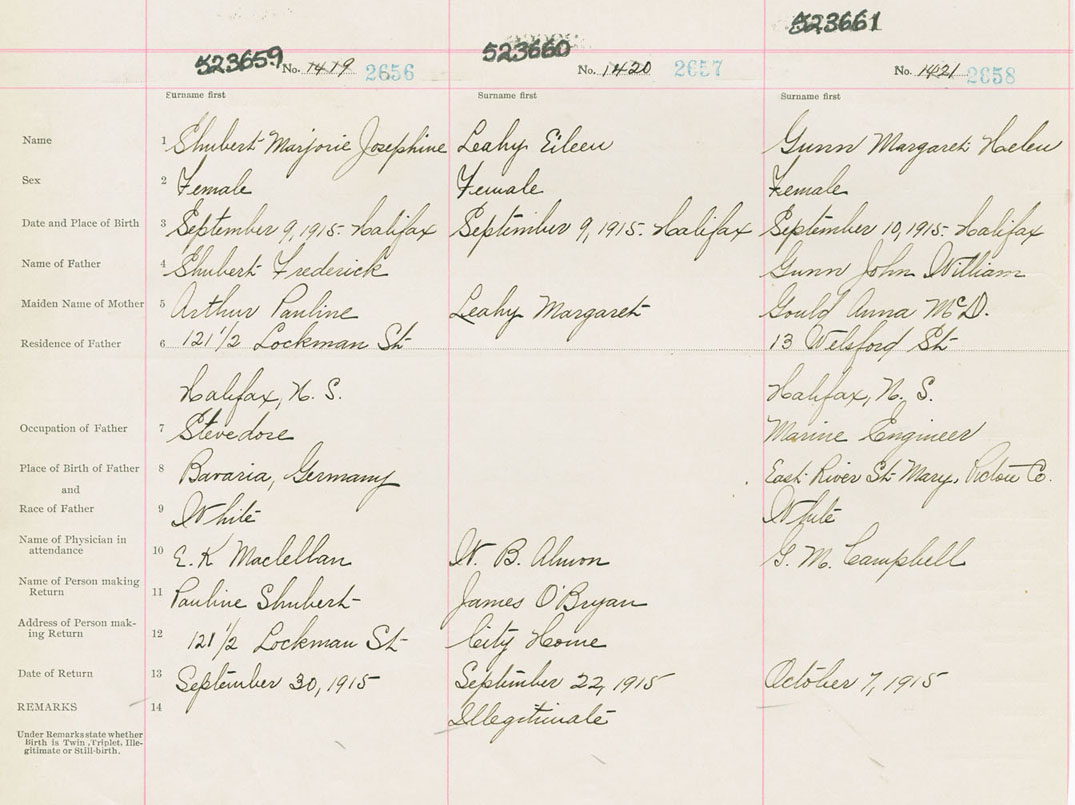 523659 523660 523661
No. 1419 2656 No. 1420 2657 No. 1421 2658
Surname first Surname first Surname first
Name 1 Shubert Marjorie Josephine Leahy Eileen Gunn Margaret Helen
Sex 2 Female Female Female
Date and Place of Birth 3 September 9, 1915 - Halifax September 9, 1915 - Halifax September 10, 1915 - Halifax
Name of Father 4 Shubert Frederick Gunn John William
Maiden Name of Mother 5 Arthur Pauline Leahy Margaret Gould Anna McD.
Residence of Father 6 121 1/2 Lockman St 13 Welsford St
Halifax, N. S. Halifax, N. S.
Occupation of Father 7 Stevedore Marine Engineer
Place of Birth of Father 8 Bavaria, Germany East River St Mary, Pictou Co.
and
Race of Father 9 White White
Name of Physician in
attendance 10 E. K Maclellan W. B. Almon G. M. Campbell
Name of Person making
Return 11 Pauline Shubert James O'Bryan
Address of Person mak-
ing Return 12 121 1/2 Lockman St City Home
Date of Return 13 September 30, 1915 September 22, 1915 October 7, 1915
REMARKS 14 Illegitimate
Under Remarks state whether
Birth is Twin, Triplet, Ille-
gitimate or Still-birth.